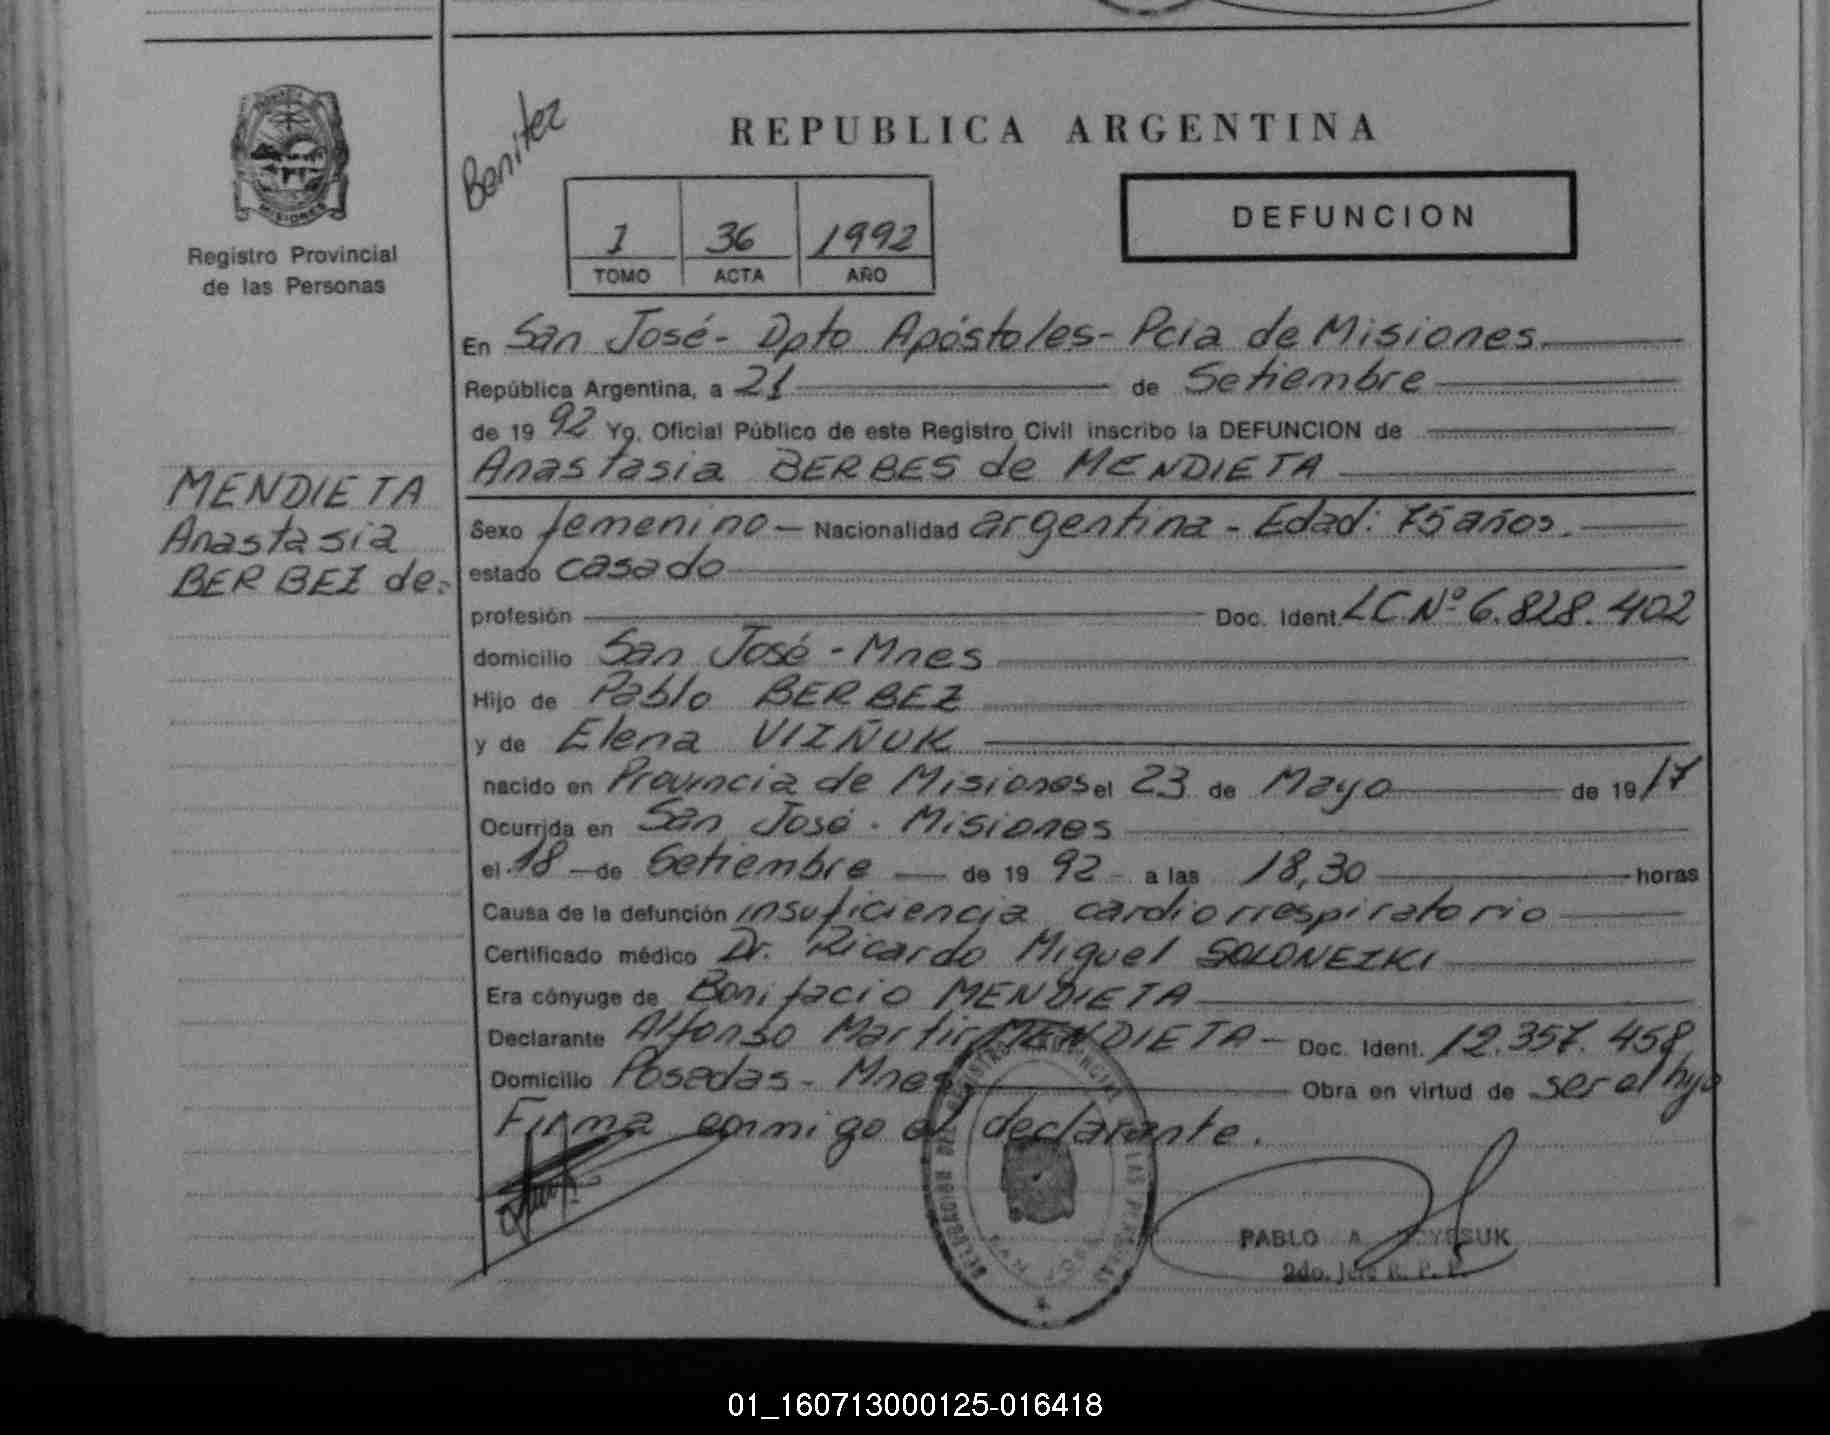 REPUBLICA ARGENTINA
Benitez
1 36 1992
TOMO ACTA AÑO
DEFUNCION
MISIONES
Registro Provincial
de las Personas
MENDIETA
Anastasia
BERBEZ de.
En San José - Dpto Apóstoles - Pcia de Misiones.
República Argentina, a 21 de Setiembre
de 19 92 Yo, Oficial Público de este Registro Civil inscribo la DEFUNCION de
Anastasia BERBES de MENDIETA
Sexo femenino - Nacionalidad argentina - Edad: 75 años.
estado casado
profesión Doc. Ident. LC Nº 6.828.402
domicilio San José - Mnes
Hijo de Pablo BERBEZ
y de Elena VIZÑUK
nacido en Provincia de Misiones el 23 de Mayo de 19 17
Ocurrida en San José - Misiones
el 18 - de Setiembre - de 19 92 - a las 18,30 horas
Causa de la defunción insuficiencia cardiorrespiratorio
Certificado médico Dr. Ricardo Miguel SOLONEZKI
Era cónyuge de Bonifacio MENDIETA
Declarante Alfonso Martir MENDIETA - Doc. Ident. 12.357.458
Domicilio Posadas - Mnes Obra en virtud de ser el hijo
Firma conmigo el declarante.
DELEGACION DEL REGISTRO PROVINCIAL DE LAS PERSONAS
SAN JOSE
PABLO A.
2do. Jefe R. P. P.
01_160713000125-016418